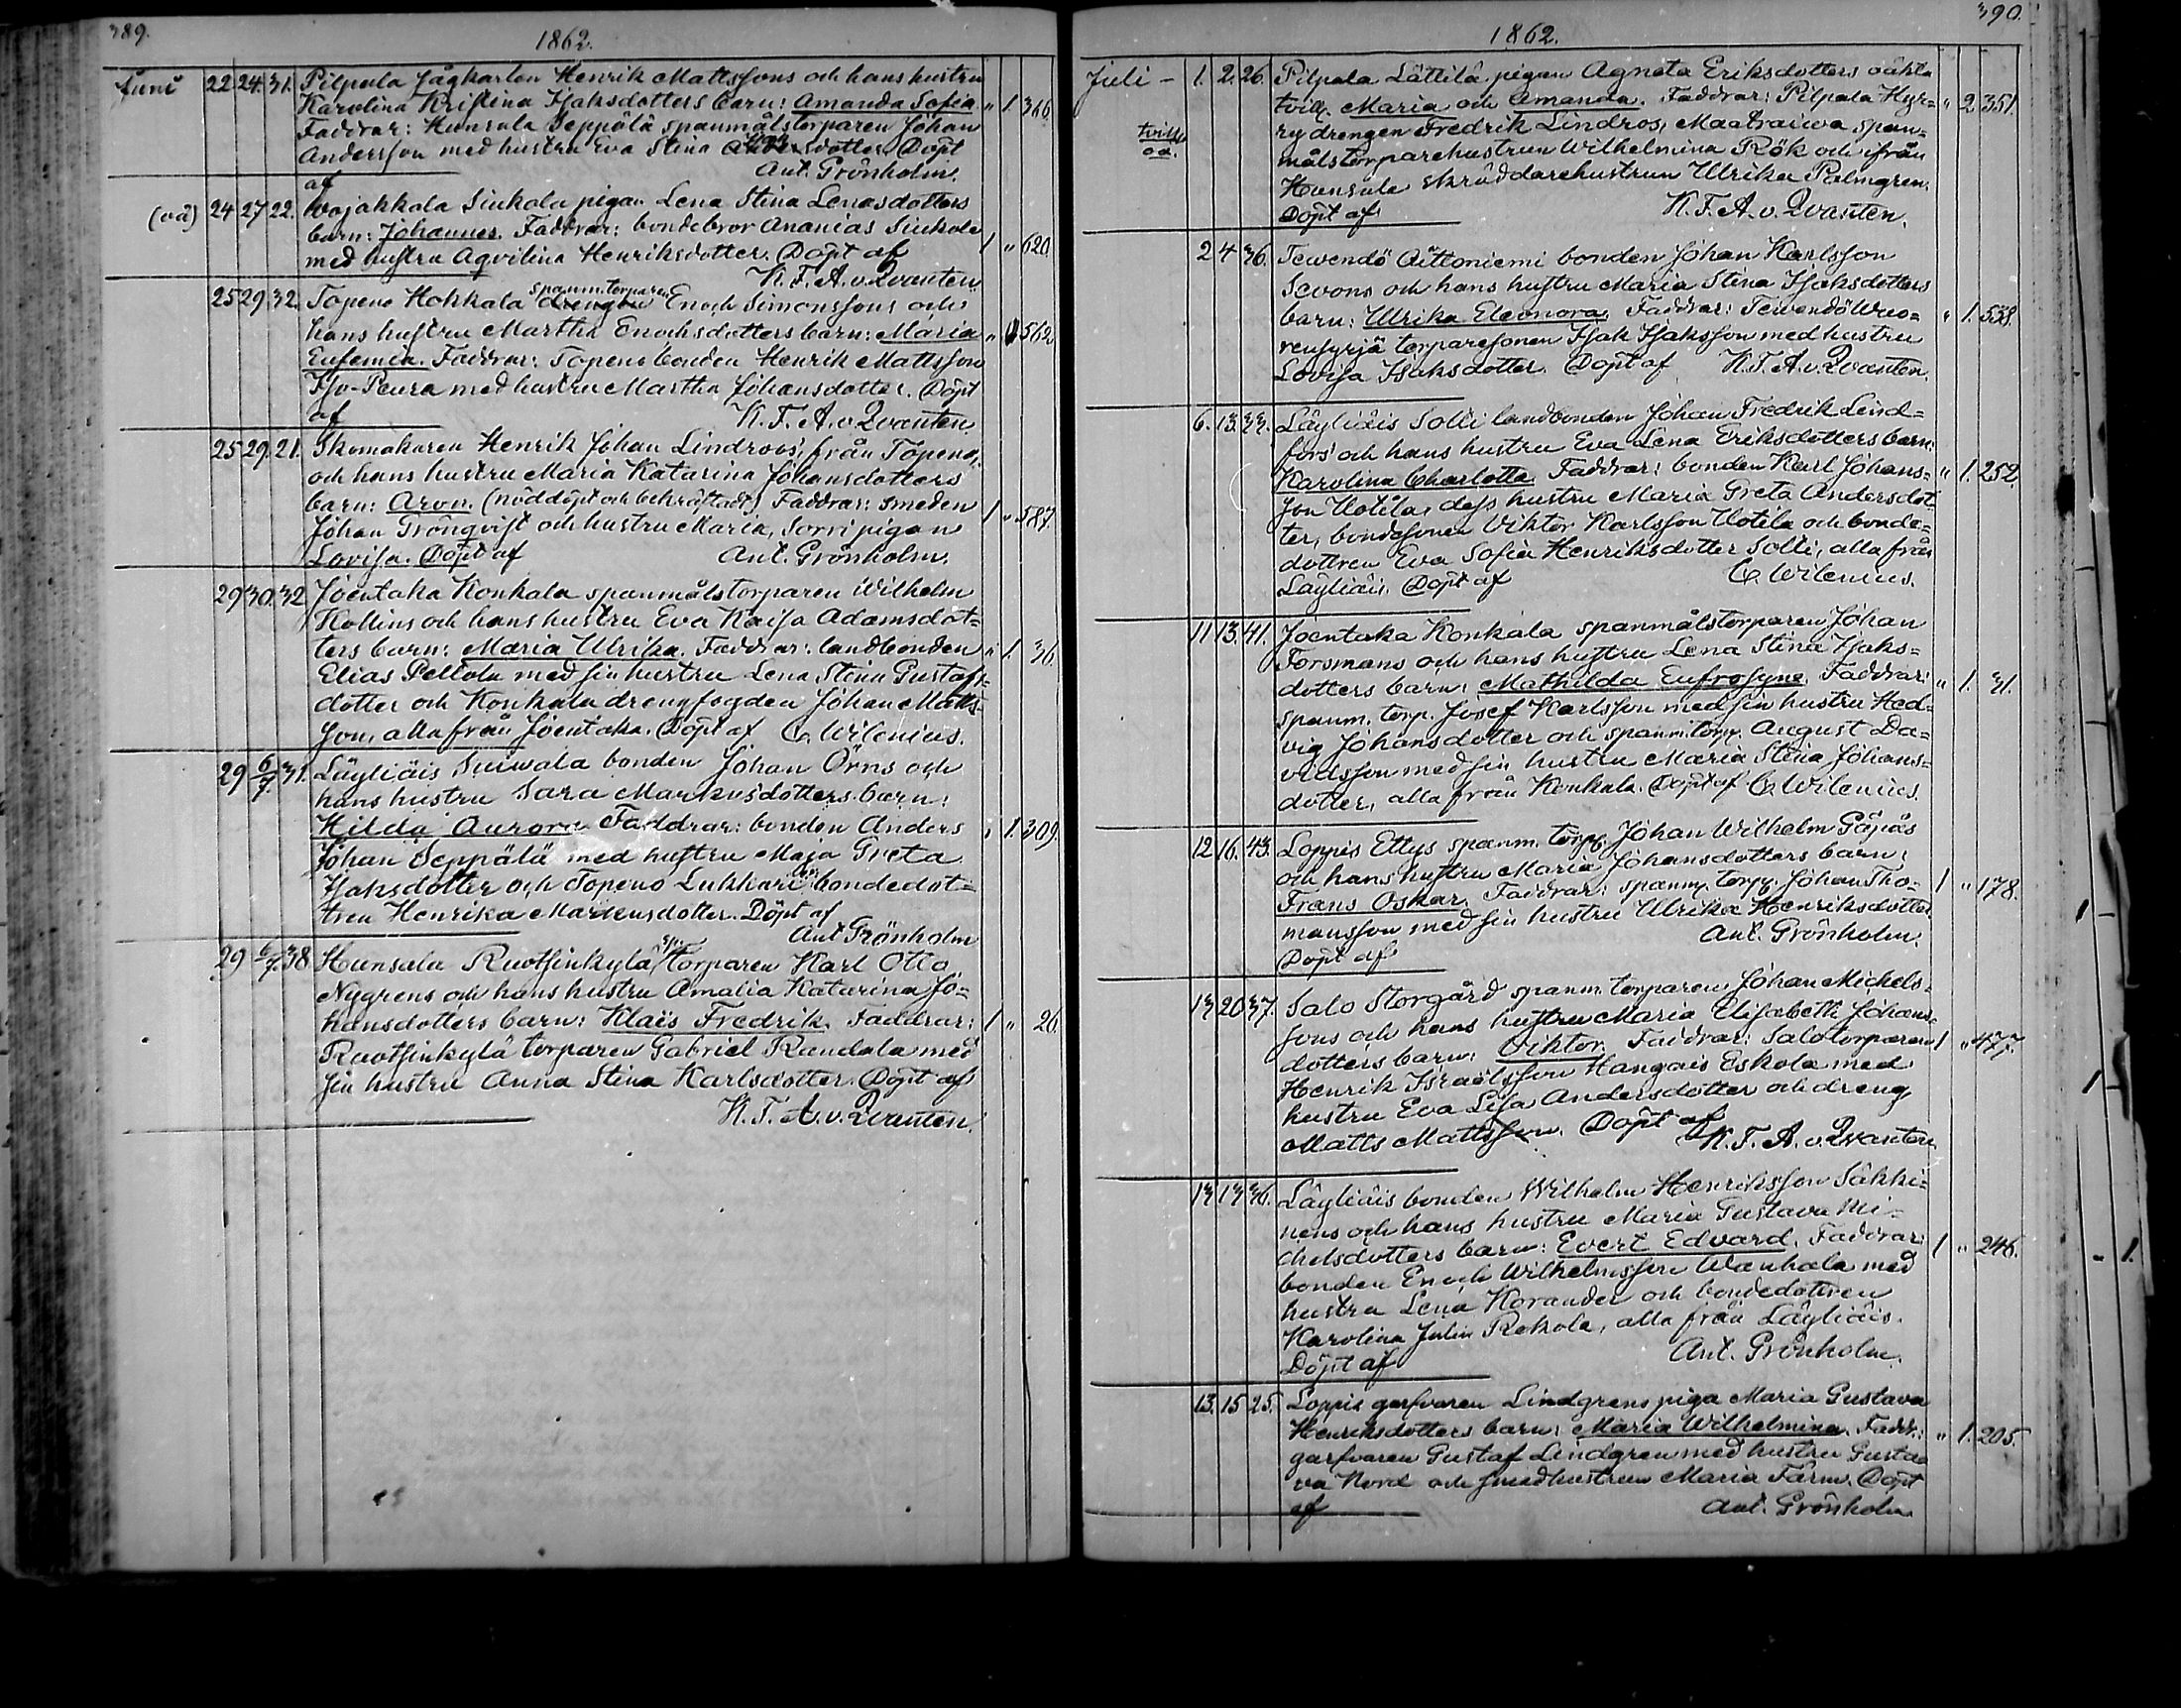 389.
1862.
Juni 22. 24. 31. Pilpala Jägkarlen Henrik Mattssons och hans hustru
Karolina Kristina Isaksdotters barn: Amanda Sofia. " 1. 366.
Faddrar: Hunsala Seppälä spanmålstorparen Johan
Andersson med hustru Eva Stina dotter. Döpt
af Ant. Grönholm.
(oä) 24 27 22. Wojakkala Siukola pigan Lena Stina Lenasdotters
barn: Johannes. Faddrar: bondebror Ananias Siukola 1 " 620.
med hustru Aqvilina Henriksdotter. Döpt af
K. F. A. v. Qvanten.
25 29. 32. Topeno Hokkala spanm. torparen Enoch Simonssons och
hans hustru Martha Enochsdotters barn: Maria " 1 562.
Eufemia. Faddrar: Topeno bonden Henrik Mattsson
Iso-Peura med hustru Martha Johansdotter. Döpt
af K. F. A. v. Qvanten
25 29. 21. Skomakaren Henrik Johan Lindroos', från Topeno,
och hans hustru Maria Katarina Johansdotters
barn: Aron. (nöddöpt och bekräftadt) Faddrar: smeden
Johan Grönqvist och hustru Maria, Sorri pigan 1 " 587.
Lovisa. Döpt af Ant. Grönholm.
29 30. 32 Joentaka Konkala spanmålstorparen Wilhelm
Kollins och hans hustru Eva Kaisa Adamsdot-
ters barn: Maria Ulrika. Faddrar: landbonden " 1. 36.
Elias Pellola med sin hustru Lena Stina Gustafs-
dotter och Konkala drengfogden Johan Matts-
son, alla från Joentaka. Döpt af C. Wilenius.
29 6/7. 31. Läyliäis Suiwala bonden Johan Örns och
hans hustru Sara Markusdotters barn:
Hilda Aurora. Faddrar: bonden Anders " 1. 309.
Johan Seppälä med hustru Maja Greta
Isaksdotter och Topeno Lukkari bondedot-
tren Henrika Markusdotter. Döpt af
Ant Grönholm
29 6/7. 38 Hunsala Ruotsinkylä sp. torparen Karl Otto
Nygrens och hans hustru Amalia Katarina Jo-
hansdotters barn: Klaës Fredrik. Faddrar: 1 " 26.
Ruotsinkylä torparen Gabriel Randala med
sin hustru Anna Stina Karlsdotter. Döpt af
K. F. A. v. Qvanten.
390.
1862.
Juli - 1. 2. 26. Pilpala Lättilä pigan Agneta Eriksdotters oäkta
tvill. Maria och Amanda. Faddrar: Pilpala Hyr- " 2 351.
tvill. ry drengen Fredrik Lindros, Maatraiwa span-
oä. målstorparehustrun Wilhelmina Rök och ifrån
Hunsala skräddarehustrun Ulrika Palmgren.
Döpt af K. F. A. v. Qvanten.
2 4 36. Tewendö Aittoniemi bonden Johan Karlsson
Sevons och hans hustru Maria Stina Isaksdotters
barn: Ulrika Eleonora. Faddrar: Tewendö Wuo- " 1. 538.
rensyrjä torparesonen Isak Isaksson med hustru
Lovisa Isaksdotter. Döpt af K. F. A. v. Qvanten.
6. 13. 33. Läyliäis Solli landbonden Johan Fredrik Lind-
fors' och hans hustru Eva Lena Eriksdotters barn:
Karolina Charlotta. Faddrar: bonden Karl Johans- " 1. 252.
son Uotila, dess hustru Maria Greta Andersdot-
ter, bondesonen Viktor Karlsson Uotila och bonde-
dottren Eva Sofia Henriksdotter Solli, alla från
Läyliäis. Döpt af C. Wilenius.
11 13. 41. Joentaka Konkala spanmålstorparen Johan
Forsmans och hans hustru Lena Stina Isaks-
dotters barn: Mathilda Eufrosyne. Faddrar: " 1. 31.
spanm. torp. Josef Karlsson med sin hustru Hed-
vig Johansdotter och spanm. torp. August Da-
vidsson med sin hustru Maria Stina Johans-
dotter, alla från Konkala. Döpt af C. Wilenius.
12 16. 43. Loppis Ettys spanm. torp. Johan Wilhelm Gåpås
och hans hustru Maria Johansdotters barn:
Frans Oskar. Faddrar: spanm. torp. Johan Tho- 1 " 178.
mansson med sin hustru Ulrika Henriksdotter
Döpt af Ant. Grönholm.
13 20 37. Salo Storgård spanm. torparen Johan Michels-
sons och hans hustru Maria Elisabeth Johans-
dotters barn: Viktor. Faddrar: Salo torparen 1 " 477.
Henrik Israëlsson Hangais Eskola med
hustru Eva Lisa Andersdotter och dreng
Matts Mattsson. Döpt af K. F. A. v. Qvanten
13 13 36. Läyliäis bonden Wilhelm Henriksson Säkki-
nens och hans hustru Maria Gustava Mi-
chelsdotters barn: Evert Edvard. Faddrar: 1 " 246.
bonden Enoch Wilhelmsson Wanhala med
hustru Lena Korander och bondedottren
Karolina Julin Rekola, alla från Läyliäis.
Döpt af Ant. Grönholm.
13. 15 25. Loppis garfvaren Lindgrens piga Maria Gustava
Henriksdotters barn: Maria Wilhelmina. Faddr: " 1. 205.
garfvaren Gustaf Lindgren med hustru Gusta-
va Nord och smedhustrun Maria Färm. Döpt
af Ant. Grönholm.